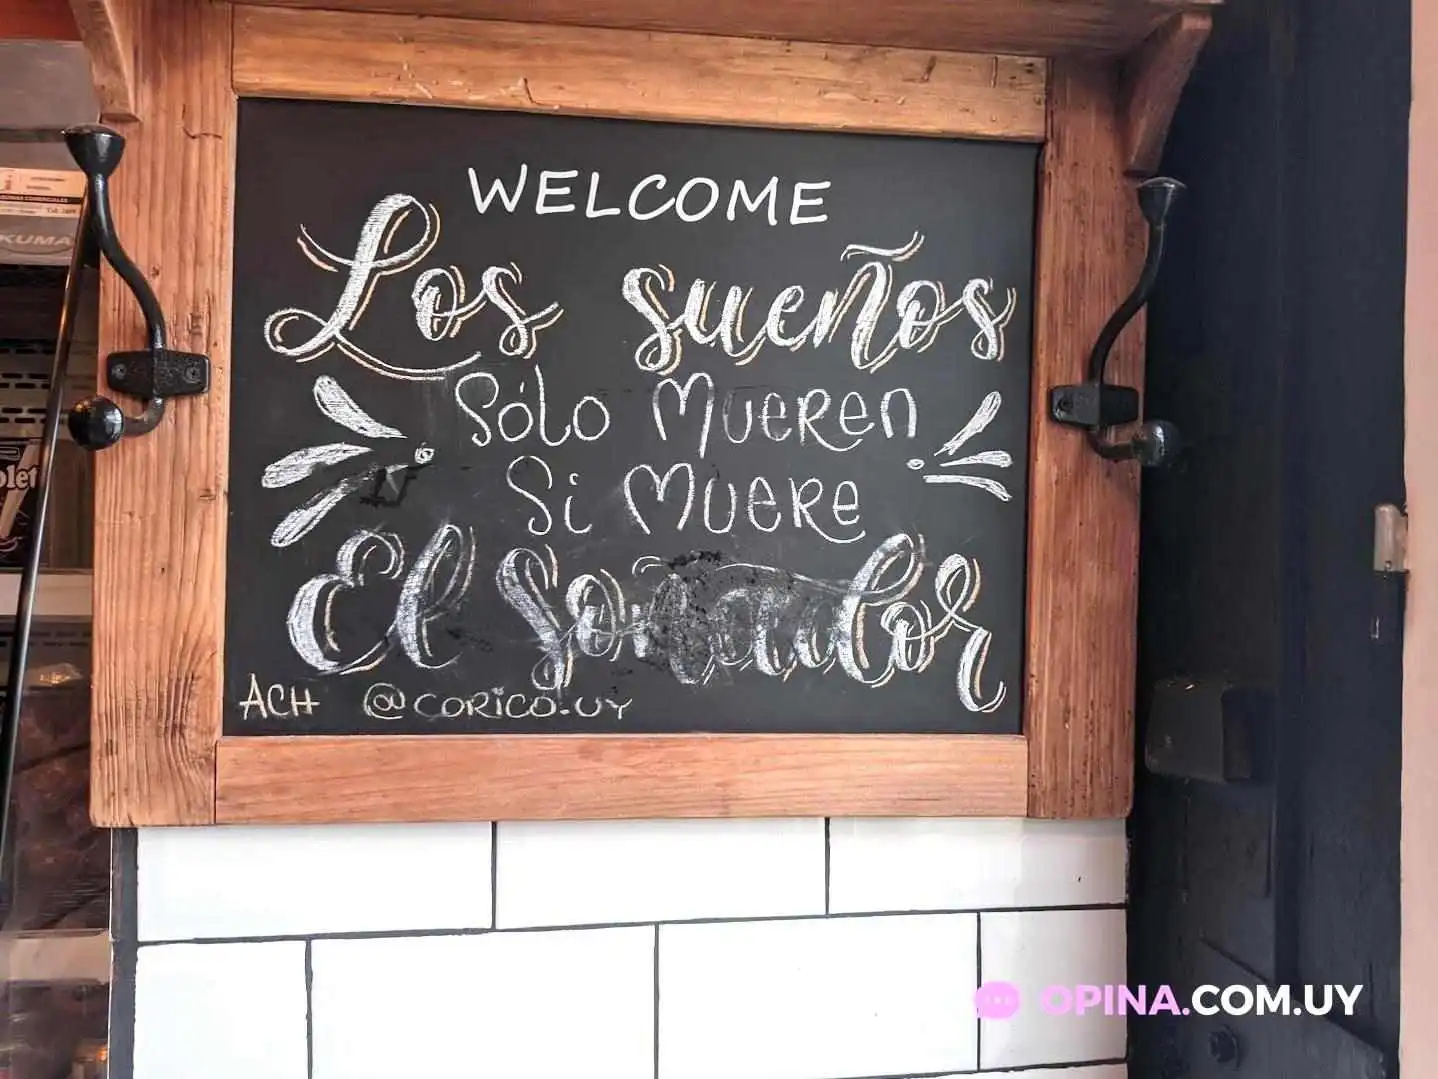 WELCOME
Los sueños
Sólo Mueren
Si Muere
El Soñador
ACH @CORICO.UY
KUMA
olet
OPINA.COM.UY